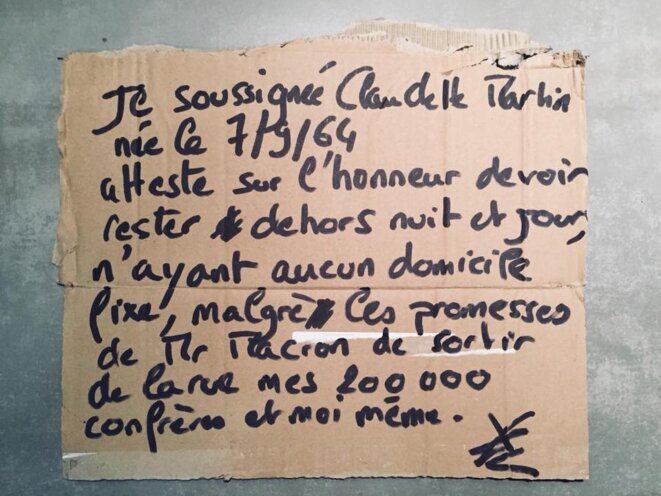 Je soussigneé Claudette Martin
née le 7/9/64
atteste sur l'honneur devoir
rester dehors nuit et jour,
n'ayant aucun domicile
fixe, malgrè les promesses
de Mr Macron de sortir
de la rue mes 200 000
confrères et moi même.